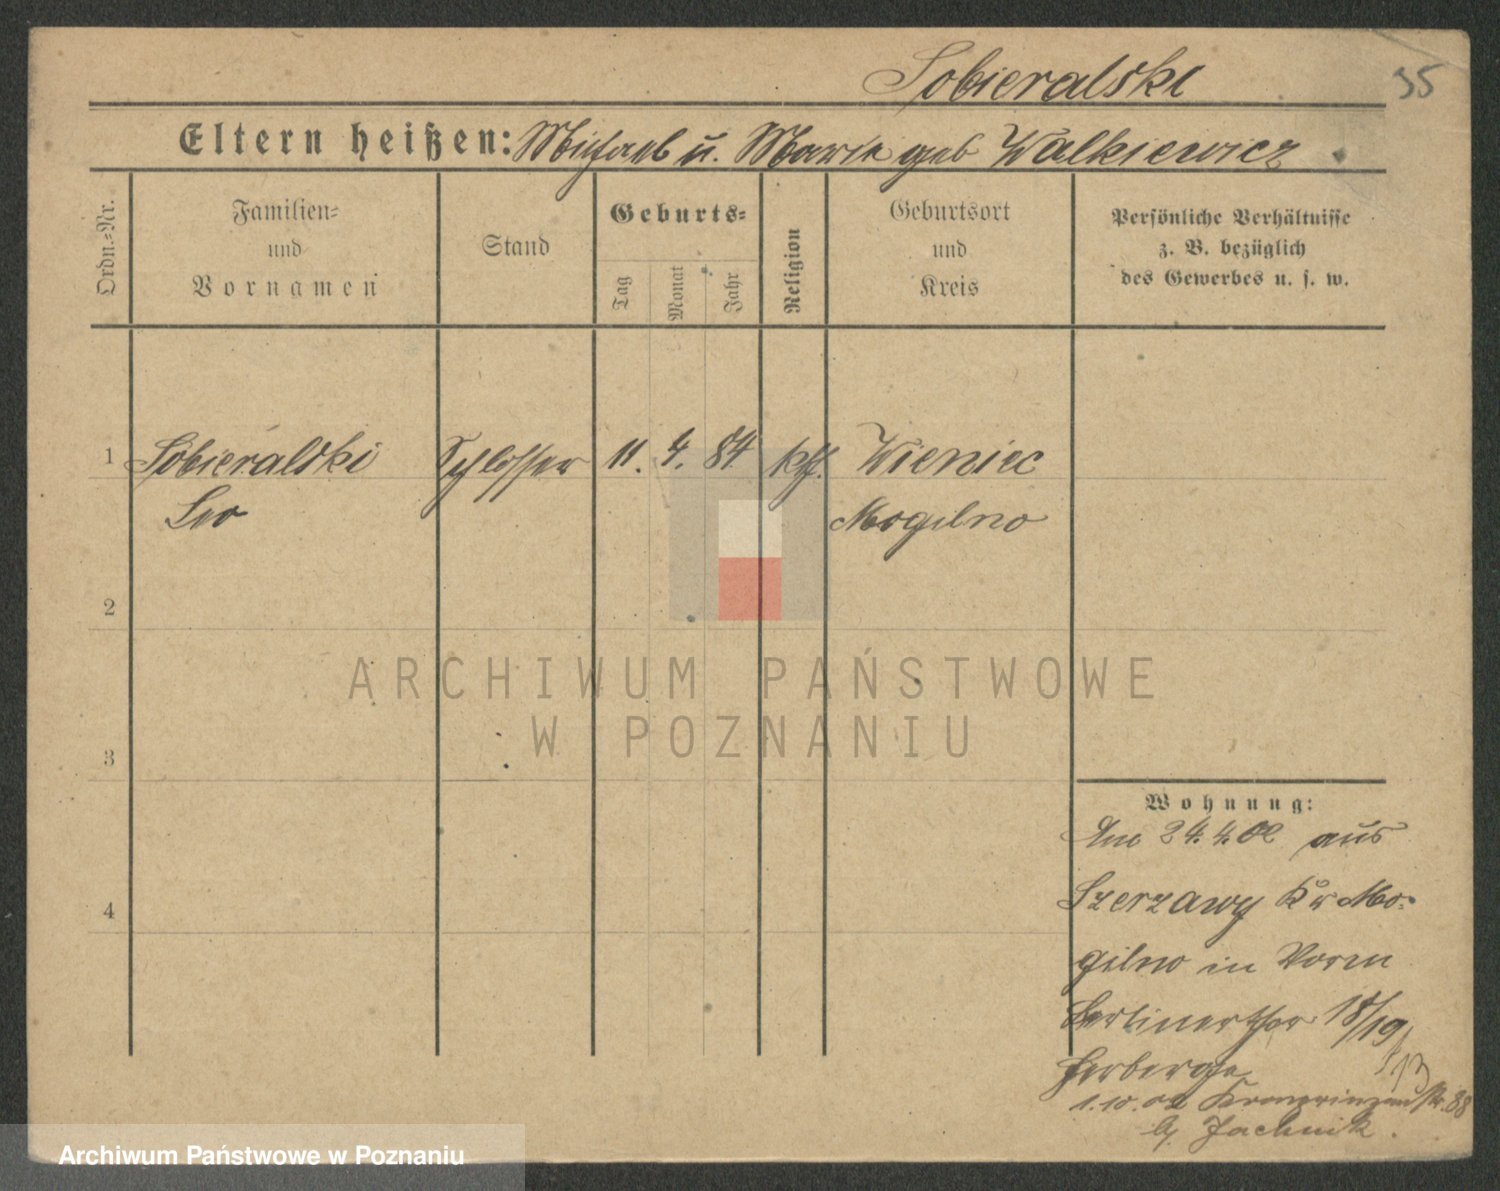 Sobieralski
35
Eltern heißen: Michael u. Marie geb Walkiewicz
Ordn.-Nr.
Familien- und Vornamen
Stand
Geburts-
Tag
Monat
Jahr
Religion
Geburtsort und Kreis
Persönliche Verhältnisse
z. B. bezüglich
des Gewerbes u. s. w.
1 Sobieralski Schlosser 11. 4. 84 kth. Wieniec
Leo Mogilno
2
ARCHIWUM PAŃSTWOWE
W POZNANIU
3
Wohnung:
Am 24.4.02 aus
Szerzawy Kr Mo-
gilno in Vorm
Berlinerthor 18/19
Herberge
1.10.02 Kronprinzenstr. 88
b/ Jachnik.
4
Archiwum Państwowe w Poznaniu